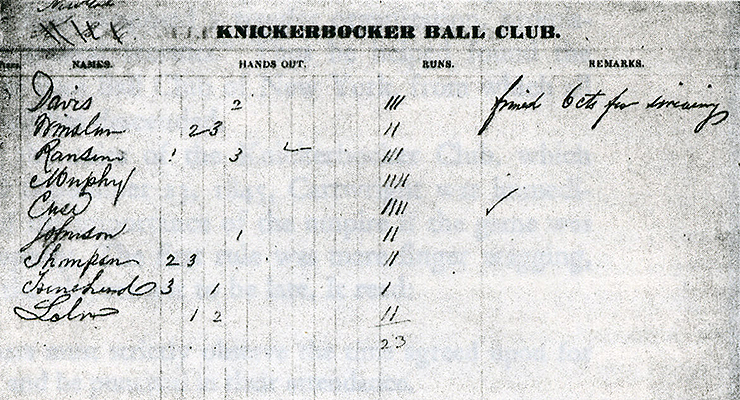 KNICKERBOCKER BALL CLUB.
NAMES. HANDS OUT. RUNS. REMARKS.
Davis 2 III fined 6 cts for swearing
Winslow 2 3 II
Ransom 1 3 III
Murphy IIII
Case IIII ✓
Johnson 1 II
Thompson 2 3 II
3 1 I
1 2 II
23